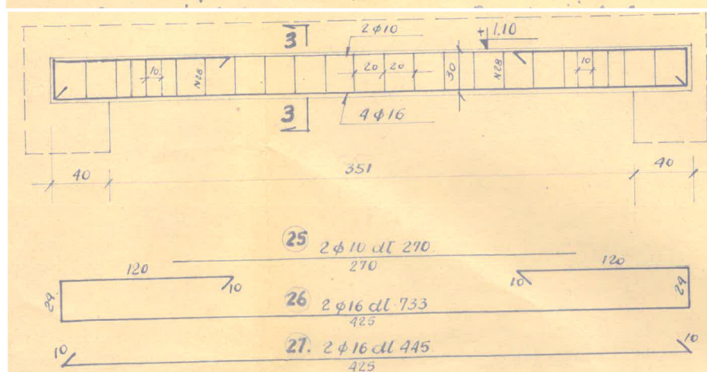 3
2ϕ10
+1.10
10
N28
20
20
30
N28
10
3
4ϕ16
40
351
40
25
2ϕ10 dl 270
270
120
120
10
10
24
24
26
2ϕ16 dl 733
425
27.
2ϕ16 dl 445
10
10
425